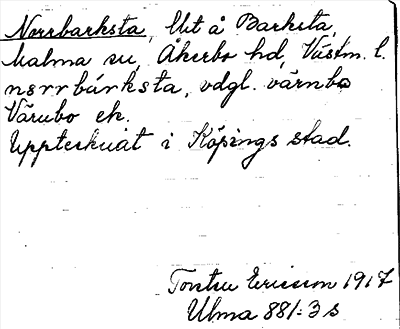 Norrbarksta, Ut å Barksta,
Malma su, Åkerbo hd, Västm. l.
norrbárksta, vdgl. värnbo
Värnbo ek.
Upptecknat i Köpings stad.
Torsten Ericsson 1917
Ulma 881:3 s